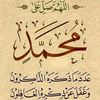 اللهم صل على
محمد
عدد ما ذكره الذاكرون
وغفل عن ذكره الغافلون